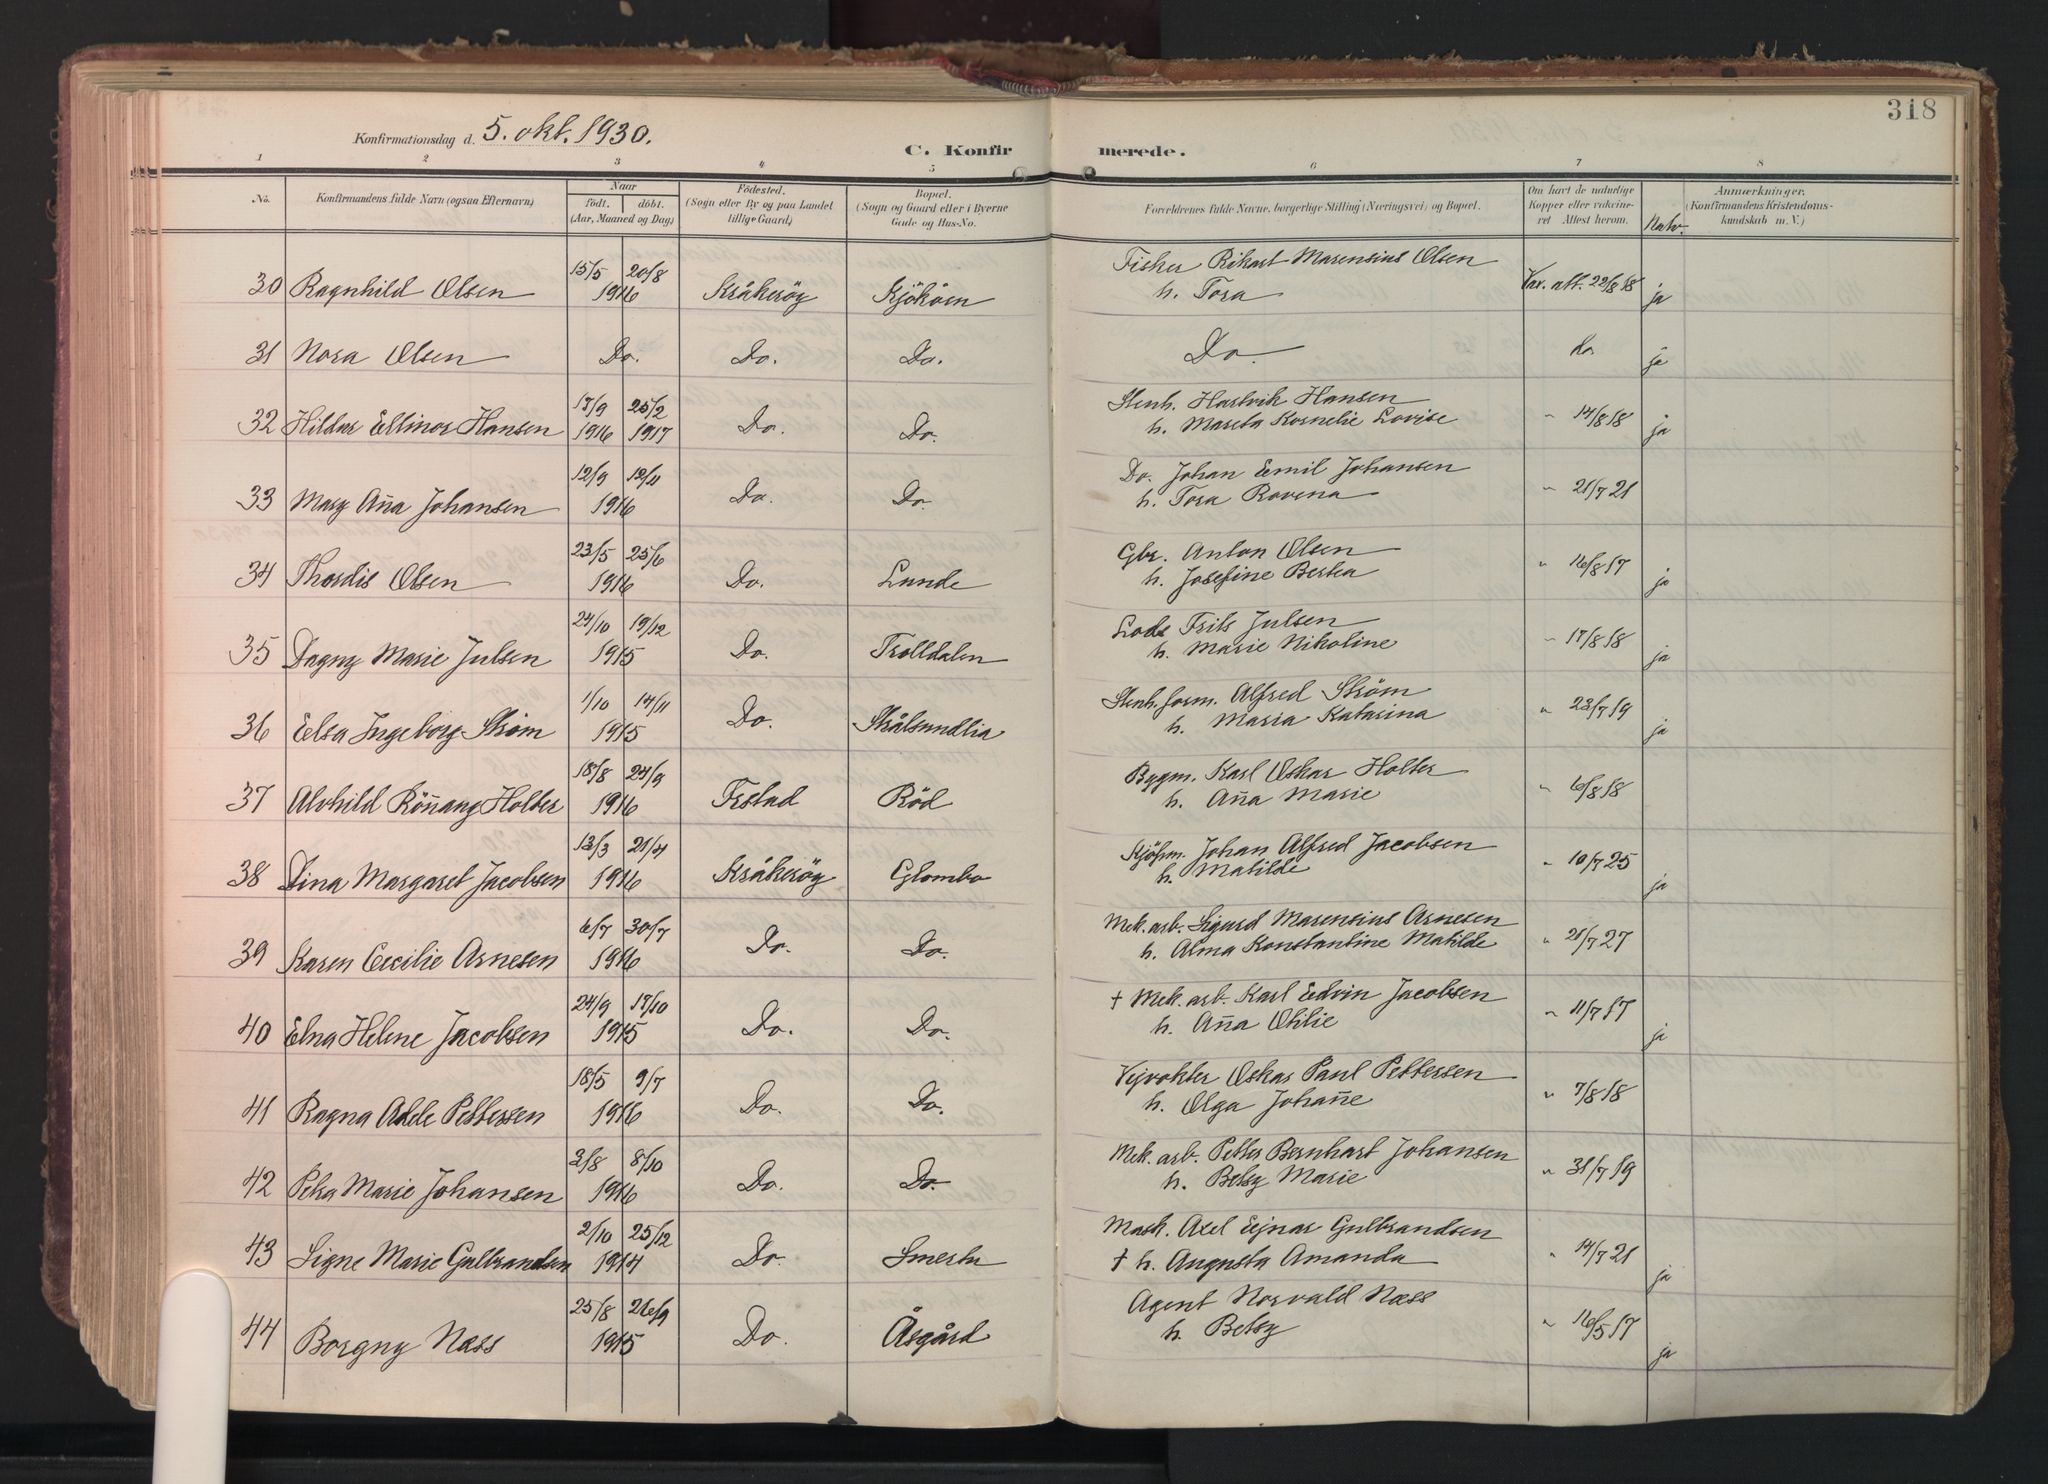 318
Konfirmationsdag d. 5. okt. 1930.
C. Konfir merede.
1 2 3 4 5 6 7 8
No. Konfirmandens fulde Navn (ogsaa Efternavn) Naar født. (Aar, Maaned og Dag) døbt. Fødested. (Sogn eller By og paa Landet tillige Gaard) Bopæl. (Sogn og Gaard eller i Byerne Gade og Hus-No. Forældrenes fulde Navne, borgerlige Stilling (Næringsvei) og Bopæl. Om havt de naturlige Kopper eller vakcineret Attest herom. Natv. Anmærkninger. (Konfirmandens Kristendomskundskab m. V.)
30 Ragnhild Olsen 15/5 20/8 1916 Kråkerøy Kjököen Fisker Rikart Marensius Olsen h. Tora Vax. att. 22/8 18 ja
31 Nora Olsen Do. Do. Do. Do do ja
32 Hildur Ellinor Hansen 17/9 1916 25/2 1917 Do. Do. Stenh. Hartvik Hansen h. Mareta Kornelie Lovise " 14/8 18 ja
33 Mary Aña Johansen 12/9 12/11 1916 Do. Do. Do. Johan Eemil Johansen h. Tora Rovena " 21/7 21
34 Thordis Olsen 23/5 25/6 1916 Do. Lunde Gbr. Anton Olsen h. Josefine Berta " 16/8 17 ja
35 Dagny Marie Julsen 24/10 19/12 1915 Do. Trolldalen Lods Frits Julsen h. Marie Nikoline " 17/8 18 ja
36 Elsa Ingeborg Strøm 1/10 14/11 1915 Do. Skålsundlia Stenh. form. Alfred Strøm h. Maria Katarina " 23/7 19 ja
37 Alvhild Röñang Holter 18/8 24/9 1916 Frstad Röd Bygm. Karl Oskar Holter h. Aña Marie " 6/8 18
38 Dina Margaret Jacobsen 13/3 21/4 1916 Kråkeröy Glombo Kjöpm. Johan Alfred Jacobsen h. Matilde " 10/7 25 ja
39 Karen Cecilie Arnesen 6/7 30/7 1916 Do. Do. Mek. arb. Sigurd Marensius Arnesen h. Alma Konstantine Matilde " 21/7 27
40 Elna Helene Jacobsen 24/9 17/10 1915 Do. Do. † Mek. arb. Karl Edvin Jacobsen h. Aña Otilie " 11/7 17 ja
41 Ragna Adele Pettersen 18/5 9/7 1916 Do. Do. Vejvokter Oskar Paul Pettersen h. Olga Johañe " 7/8 18
42 Peka Marie Johansen 3/8 8/10 1916 Do. Do. Mek. arb. Petter Bernhart Johansen h. Betsy Marie " 31/7 19
43 Signe Marie Gulbrandsen 2/10 25/12 1914 Do. Smertu Mask. Axel Ejnar Gulbrandsen † h. Augusta Amanda " 14/7 21 ja
44 Borgny Næss 25/8 26/9 1915 Do. Åsgård Agent Norvald Næss h. Betsy " 16/5 17 ja